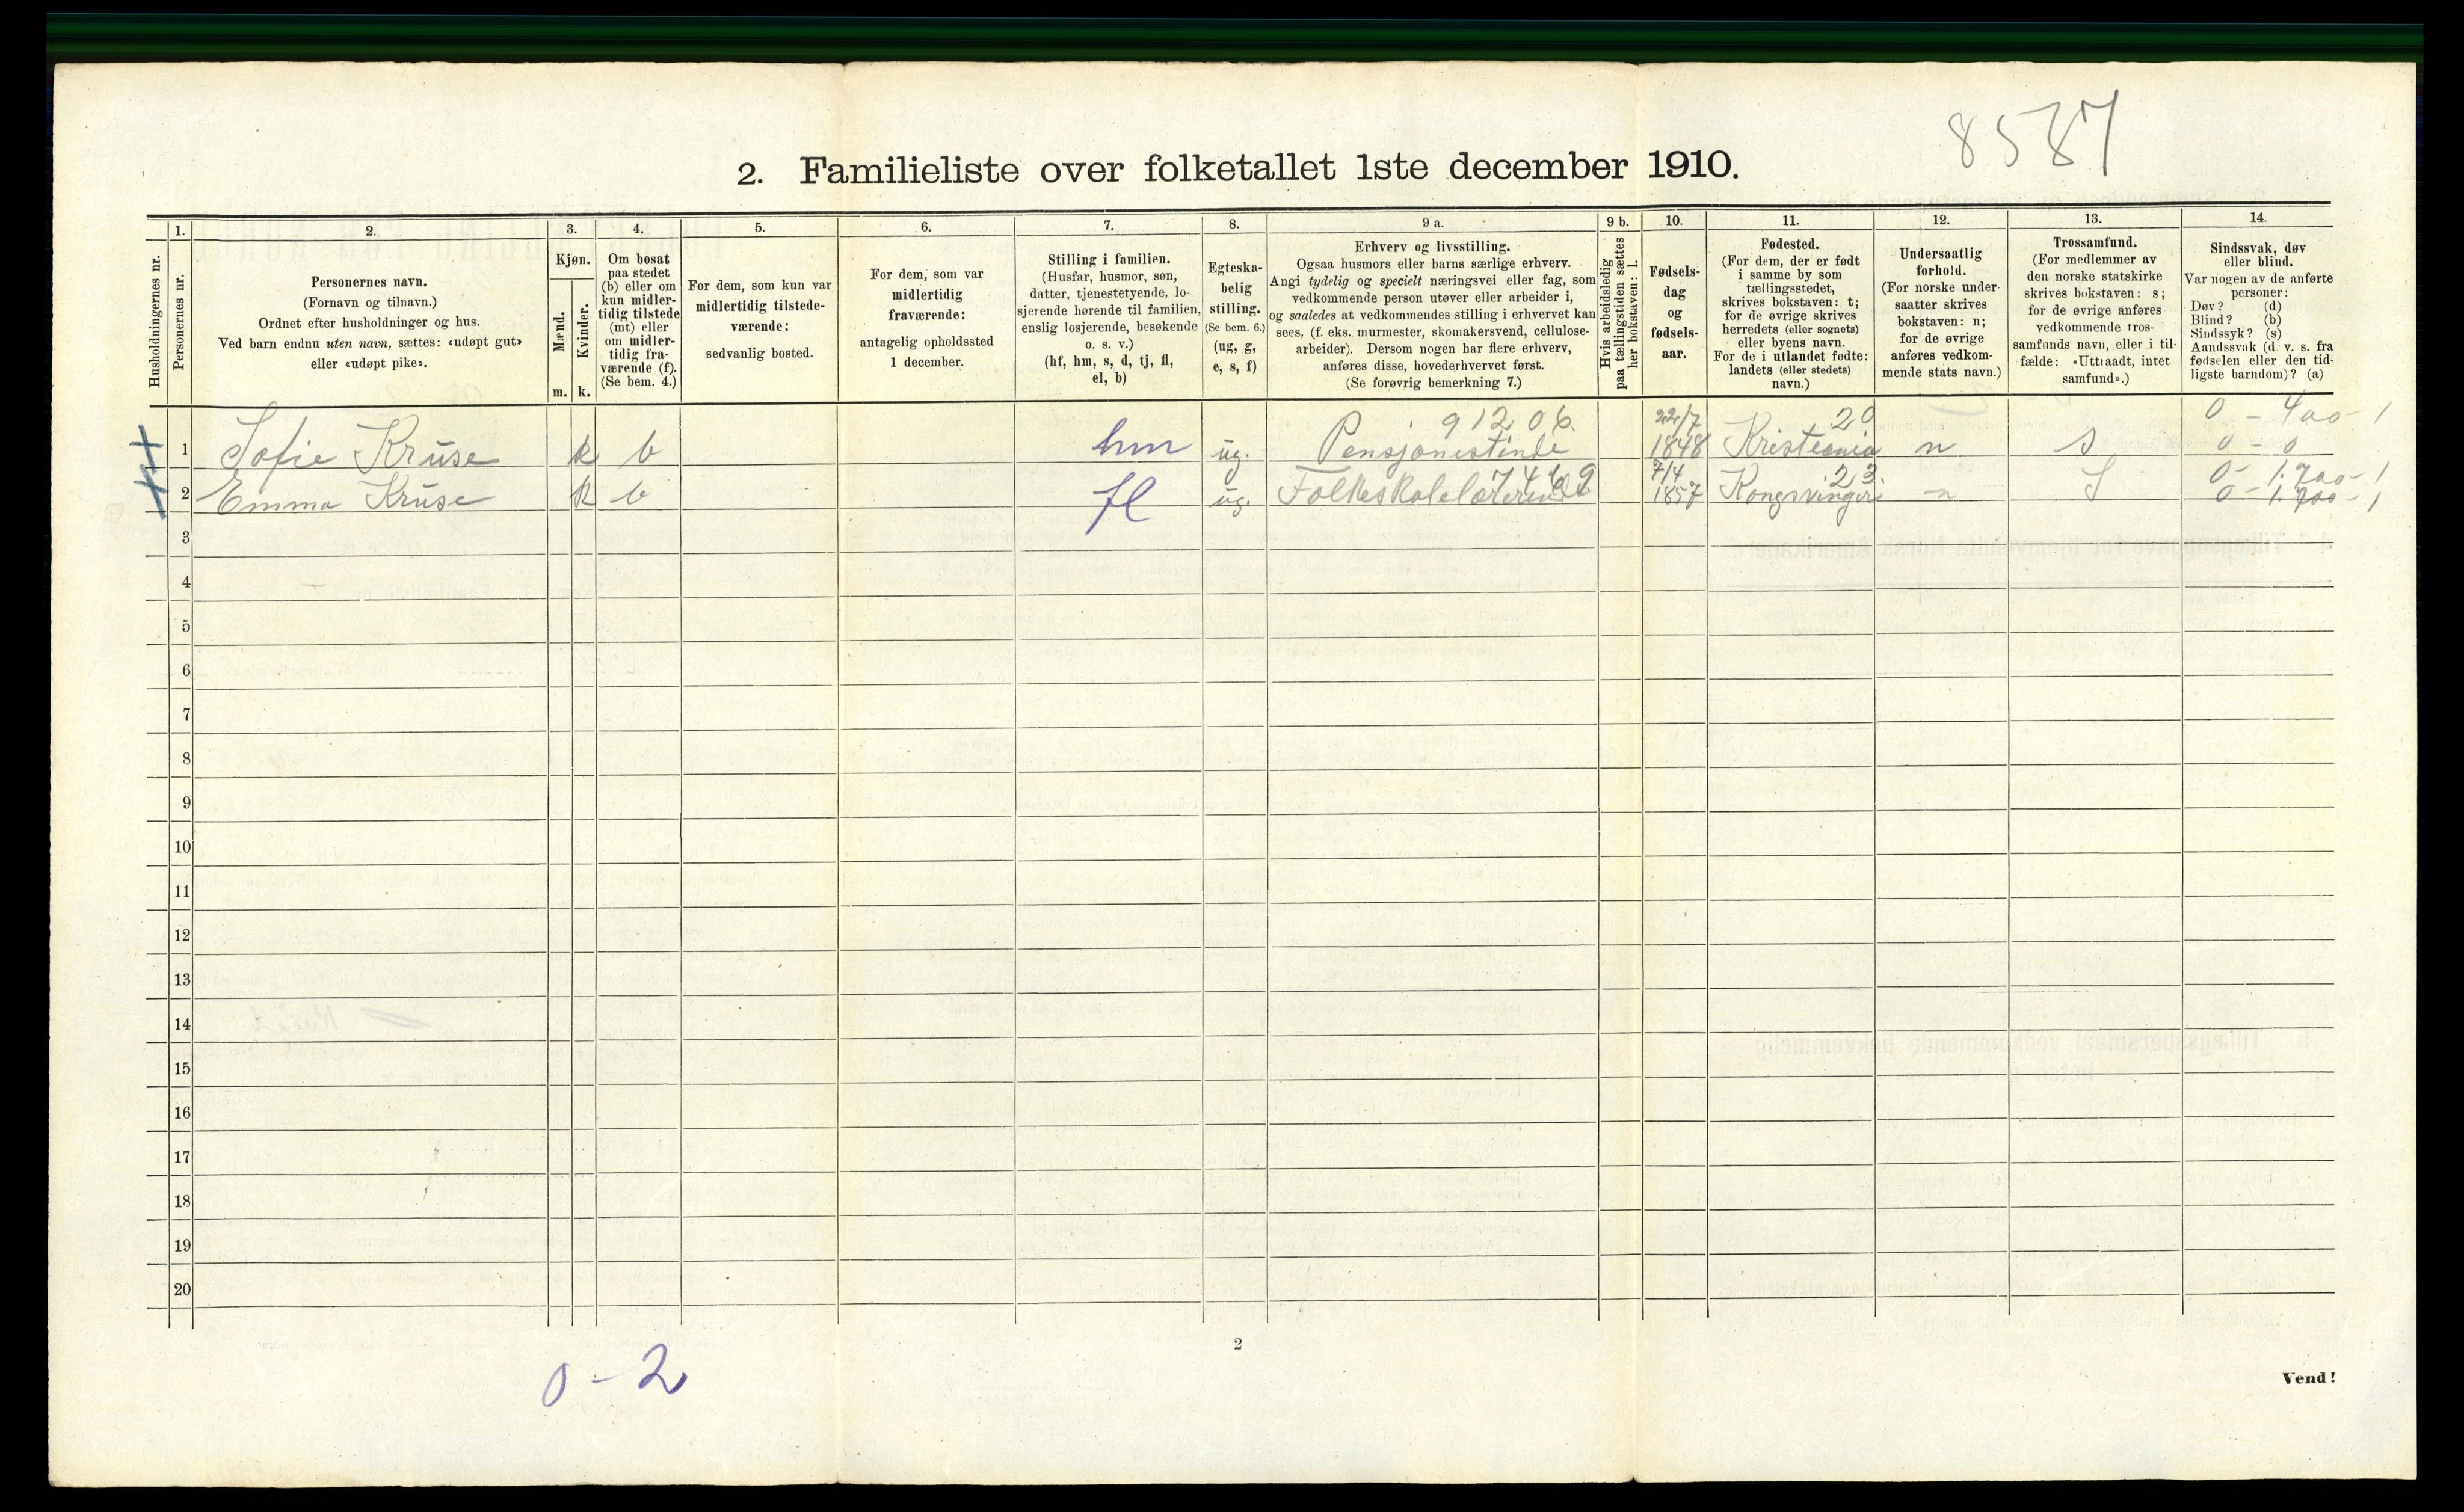 8587
2. Familieliste over folketallet 1ste december 1910.
1. 2. 3. 4. 5. 6. 7. 8. 9 a. 9 b. 10. 11. 12. 13. 14.
Husholdningernes nr.
Personernes nr.
Personernes navn.
(Fornavn og tilnavn.)
Ordnet efter husholdninger og hus.
Ved barn endnu uten navn, sættes: «udøpt gut»
eller «udøpt pike».
Kjøn.
Mænd.
Kvinder.
m. k.
Om bosat
paa stedet
(b) eller om
kun midler-
tidig tilstede
(mt) eller
om midler-
tidig fra-
værende (f).
(Se bem. 4.)
For dem, som kun var
midlertidig tilstede-
værende:
sedvanlig bosted.
For dem, som var
midlertidig
fraværende:
antagelig opholdssted
1 december.
Stilling i familien.
(Husfar, husmor, søn,
datter, tjenestetyende, lo-
sjerende hørende til familien,
enslig losjerende, besøkende
o. s. v.)
(hf, hm, s, d, tj, fl,
el, b)
Egteska-
belig
stilling.
(Se bem. 6.)
(ug, g,
e, s, f)
Erhverv og livsstilling.
Ogsaa husmors eller barns særlige erhverv.
Angi tydelig og specielt næringsvei eller fag, som
vedkommende person utøver eller arbeider i,
og saaledes at vedkommendes stilling i erhvervet kan
sees, (f. eks. murmester, skomakersvend, cellulose-
arbeider). Dersom nogen har flere erhverv,
anføres disse, hovederhvervet først.
(Se forøvrig bemerkning 7.)
Hvis arbeidsledig
paa tællingstiden sættes
her bokstaven: l.
Fødsels-
dag
og
fødsels-
aar.
Fødested.
(For dem, der er født
i samme by som
tællingsstedet,
skrives bokstaven: t;
for de øvrige skrives
herredets (eller sognets)
eller byens navn.
For de i utlandet fødte:
landets (eller stedets)
navn.)
Undersaatlig
forhold.
(For norske under-
saatter skrives
bokstaven: n;
for de øvrige
anføres vedkom-
mende stats navn.)
Trossamfund.
(For medlemmer av
den norske statskirke
skrives bokstaven: s;
for de øvrige anføres
vedkommende tros-
samfunds navn, eller i til-
fælde: «Uttraadt, intet
samfund».)
Sindssvak, døv
eller blind.
Var nogen av de anførte
personer:
Døv? (d)
Blind? (b)
Sindssyk? (s)
Aandssvak (d. v. s. fra
fødselen eller den tid-
ligste barndom)? (a)
91206. 22/7 20 0 - 400 - 1
1 Sofie Kruse k b hm ug. Pensjonistinde 1848 Kristiania n s 0 - 0
7/4 23. 0 - 1.700 - 1
2 Emma Kruse k b fl ug. Folkeskolelærerinde 1857 Kongsvinger n S 0 - 1.700 - 1
3
4
5
6
7
8
9
10
11
12
13
14
15
16
17
18
19
20
2
0 - 2
Vend!